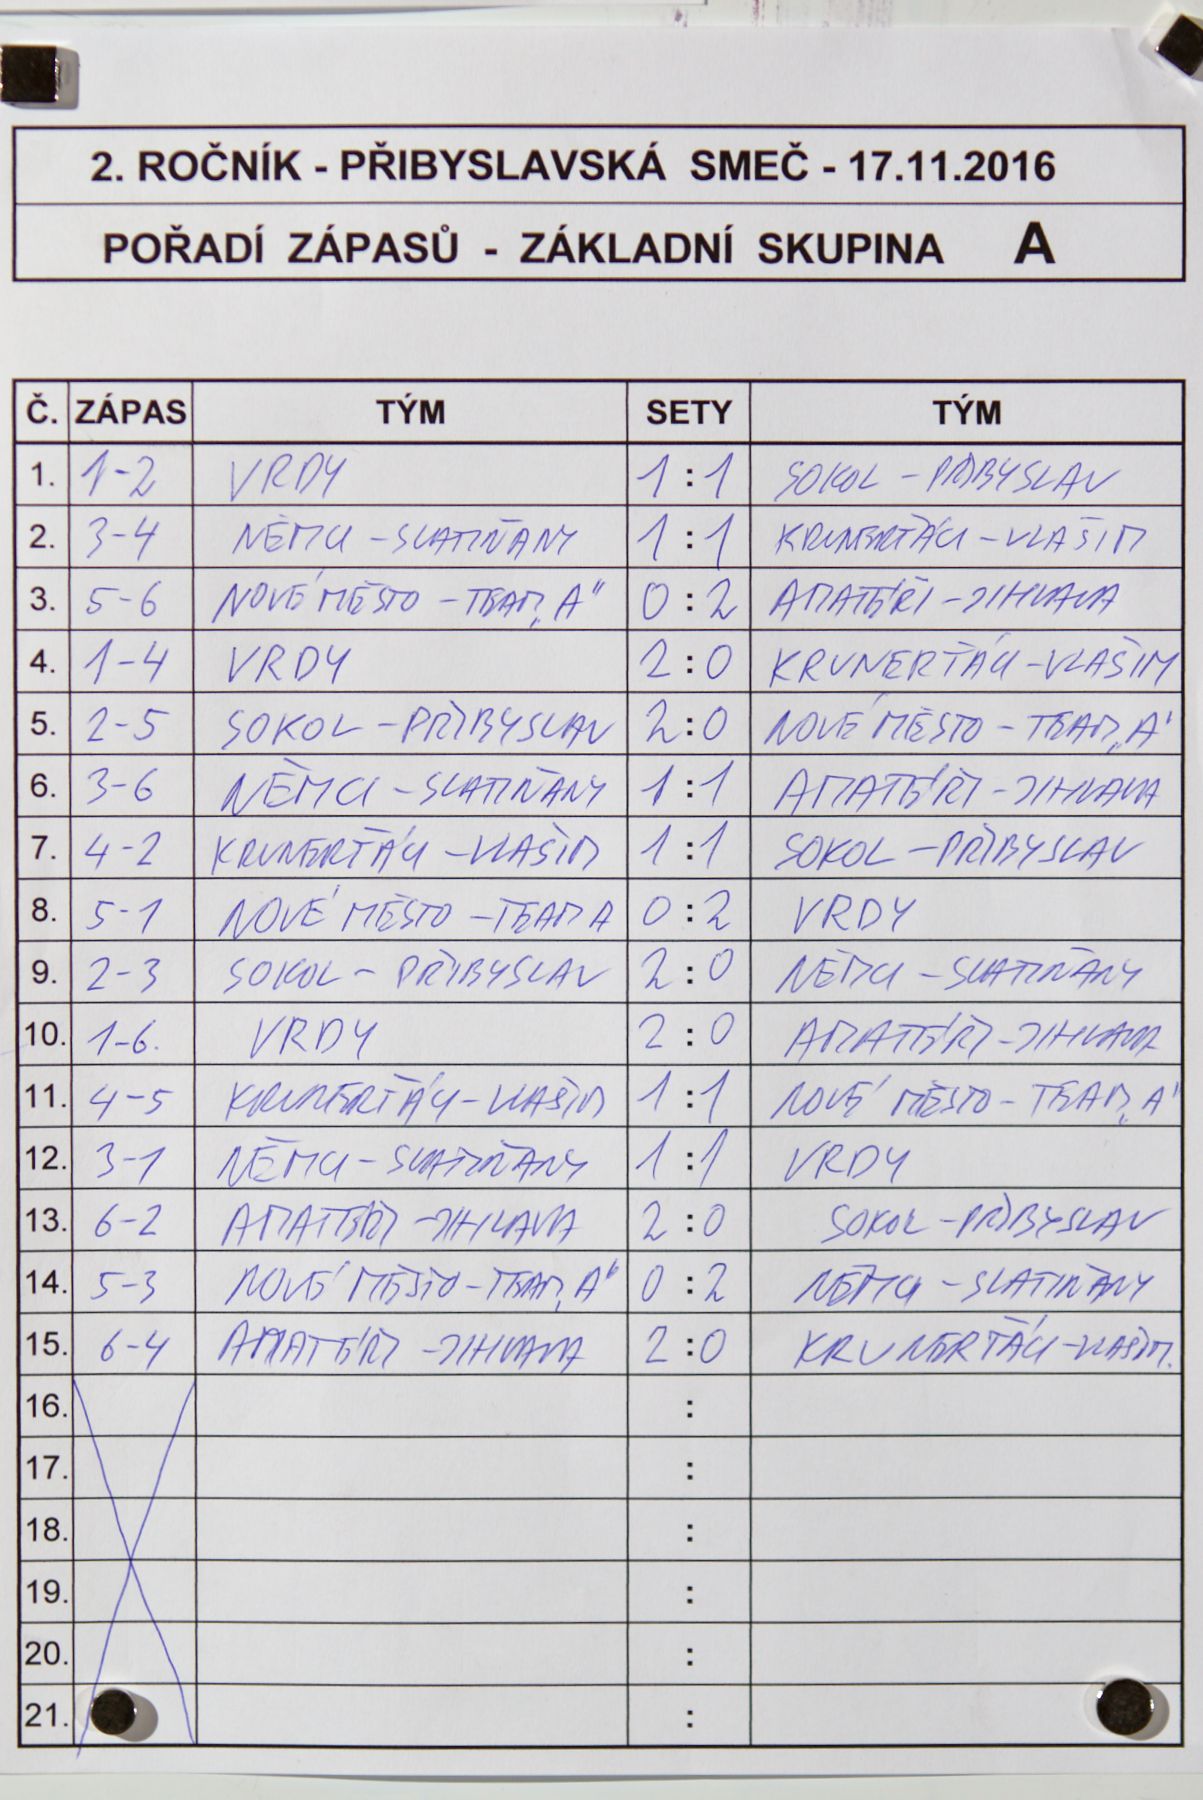 2. ROČNÍK - PŘIBYSLAVSKÁ SMEČ - 17.11.2016
POŘADÍ ZÁPASŮ - ZÁKLADNÍ SKUPINA A
Č. ZÁPAS TÝM SETY TÝM
1. 1-2 VRDY 1:1 SOKOL - PŘIBYSLAV
2. 3-4 NĚMCI - SLATIŇANY 1:1 KRUNERŤÁCI - VLAŠIM
3. 5-6 NOVÉ MĚSTO - TEAM „A" 0:2 AMATÉŘI - JIHLAVA
4. 1-4 VRDY 2:0 KRUNERŤÁCI - VLAŠIM
5. 2-5 SOKOL - PŘIBYSLAV 2:0 NOVÉ MĚSTO - TEAM „A"
6. 3-6 NĚMCI - SLATIŇANY 1:1 AMATÉŘI - JIHLAVA
7. 4-2 KRUNERŤÁCI - VLAŠIM 1:1 SOKOL - PŘIBYSLAV
8. 5-1 NOVÉ MĚSTO - TEAM A 0:2 VRDY
9. 2-3 SOKOL - PŘIBYSLAV 2:0 NĚMCI - SLATIŇANY
10. 1-6. VRDY 2:0 AMATÉŘI - JIHLAVA
11. 4-5 KRUNERŤÁCI - VLAŠIM 1:1 NOVÉ MĚSTO - TEAM „A"
12. 3-1 NĚMCI - SLATIŇANY 1:1 VRDY
13. 6-2 AMATÉŘI - JIHLAVA 2:0 SOKOL - PŘIBYSLAV
14. 5-3 NOVÉ MĚSTO - TEAM „A" 0:2 NĚMCI - SLATIŇANY
15. 6-4 AMATÉŘI - JIHLAVA 2:0 KRUNERŤÁCI - VLAŠIM.
16. :
17. :
18. :
19. :
20. :
21. :